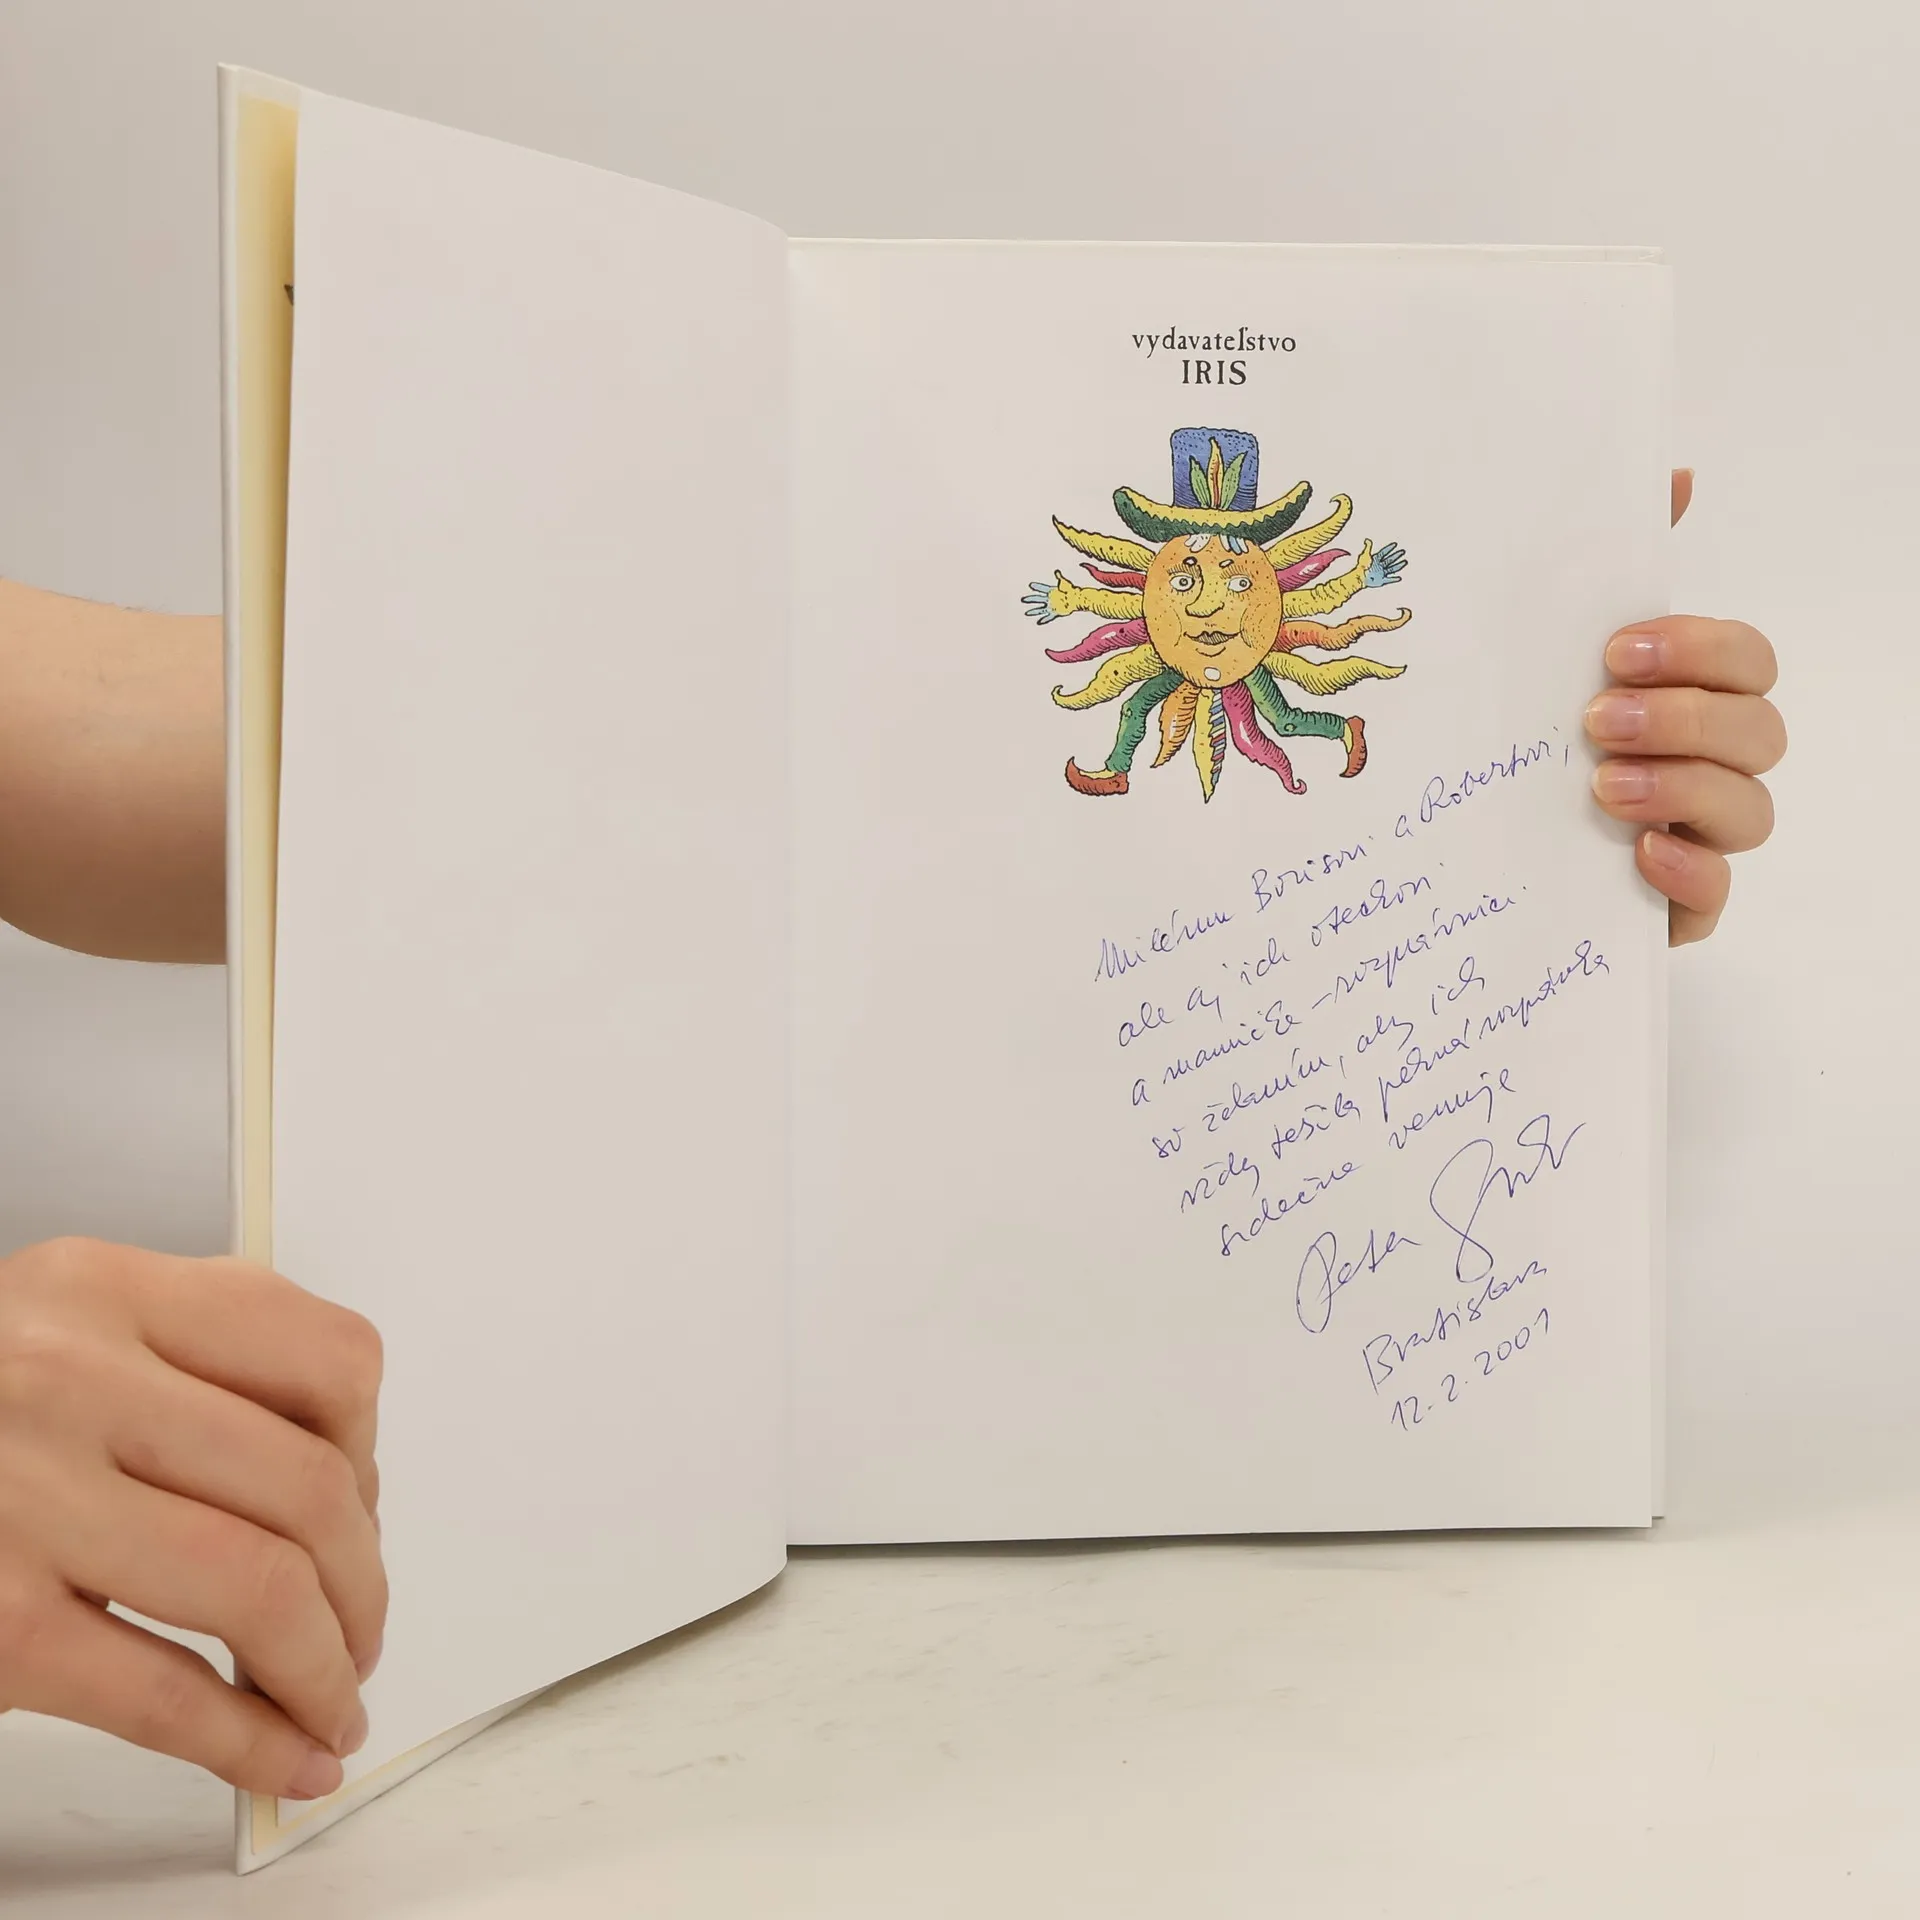 vydavateľstvo
IRIS
Milému Borisovi a Robertovi,
ale aj ich oteckovi
a mamičke – rozprávnici
so želaním, aby ich
vždy tešila pekná rozprávka
srdečne venuje
Peter
Bratislava
12. 2. 2001